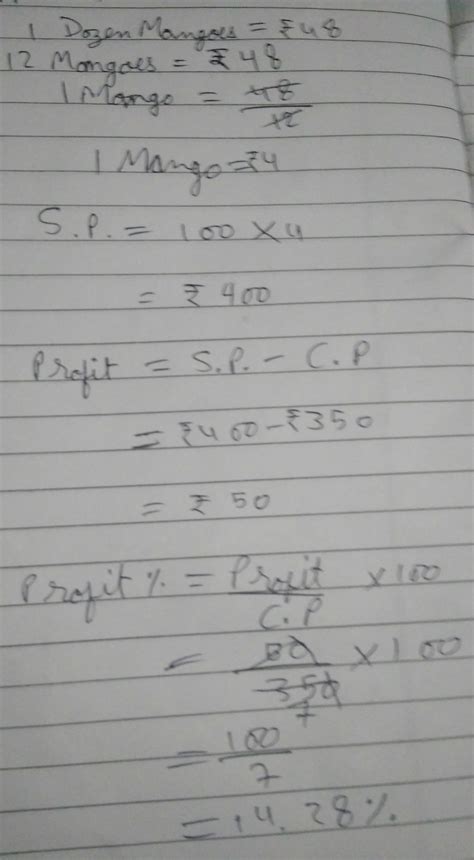 1 Dozen Mangoes = ₹48
12 Mangoes = ₹48
1 Mango = 48/12
1 Mango = ₹4
S.P. = 100 × 4
= ₹ 400
Profit = S.P. - C.P
= ₹400 - ₹350
= ₹ 50
Profit % = Profit/C.P × 100
= 50/350 × 100
7
= 100/7
= 14.28%